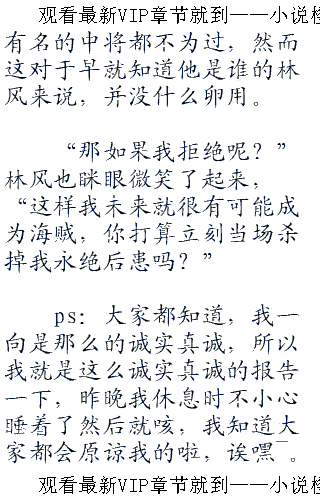 观看最新VIP章节就到——小说
有名的中将都不为过，然而
这对于早就知道他是谁的林
风来说，并没什么卵用。
“那如果我拒绝呢？”
林风也眯眼微笑了起来，
“这样我未来就很有可能成
为海贼，你打算立刻当场杀
掉我永绝后患吗？”
ps：大家都知道，我一
向是那么的诚实真诚，所以
我就是这么诚实真诚的报告
一下，昨晚我休息时不小心
睡着了然后就咳，我知道大
家都会原谅我的啦，诶嘿¯。
观看最新VIP章节就到——小说